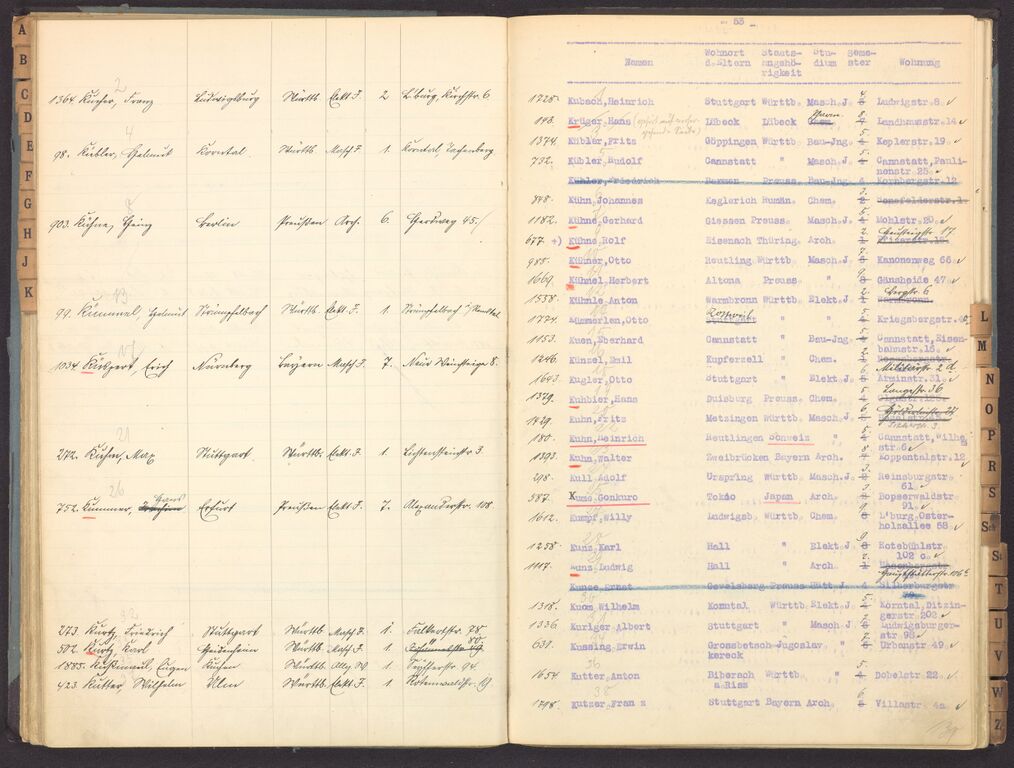 A
B
C
D
E
F
G
H
J
K
2
1364 Kucher, Franz Ludwigsburg Württb. Elekt. J. 2 L'burg, Kirchstr. 6
4
98. Kübler, Helmut Korntal Württ. Masch J. 1. Korntal,
8
903. Kühne, Heinz Berlin Preußen Arch. 6. Herdweg 45
13
99. Kümmel, Helmut Strümpfelbach Württb. Elekt J. 1. Strümpfelbach
17
1034 Erich Nürnberg Bayern Masch J. 7. Neue Weinsteige 8.
21
272. Kuhn, Max Stuttgart. Württb. Elekt. J. 1 Lichtensteinstr. 3.
26
752. Kummer, Hans Erfurt Preußen Elekt J. 7. Alexanderstr. 108.
32
273. Kurtz, Friedrich Stuttgart Württb. Masch J. 1. Falkertstr. 78
502. Kurtz Karl Württb. Masch J. 1.
1885. Kußmaul, Eugen Kuchen Württb. Allg. W. 1. 94.
423. Kutter, Wilhelm Ulm Württb. Elekt. J. 1. Rotenwaldstr. 19.
- 53 -
Wohnort Staats- Stu- Seme-
Namen d.Eltern angehö- dium ster Wohnung
rigkeit
1728. Kubach, Heinrich Stuttgart Württb. Masch. J. 4. Ludwigstr. 8
143. Krüger, Hans Lübeck Lübeck 8. Landhausstr. 14
1374. Kübler, Fritz Göppingen Württb. Bau-Jng. 5. Keplerstr. 19
732. Kübler, Rudolf Cannstatt " Masch. J. 5. Cannstatt, Pauli-
nenstr. 25
Kühler, Friedrich Barmen Preuss. Bau-Jng. 4 Kornbergstr. 12
848. Kühn, Johannes Kaglerich Rumän. Chem. 3. Senefelderstr. 1
1182. Kühne, Gerhard Giessen Preuss. Masch. J. 5. Mohlstr. 20
677. +) Kühne, Rolf Eisenach Thüring. Arch. 2. 17.
985. Kühner, Otto Reutling. Württb. Masch. J. 7. Kanonenweg 66
1669. Kühnel, Herbert Altona Preuss. " 9. Gänsheide 47
1538. Kühnle, Anton Warmbronn Württb. Elekt. J. 2. Bergstr. 6
Warmbronn
1774. Kümmerlen, Otto Rottweil " " Kriegsbergstr. 40
1153. Kuen, Eberhard Cannstatt " Bau-Jng. 5. Cannstatt, Eisen-
bahnstr. 18
1246. Künzel, Emil Kupferzell " Chem. Militärstr. 2 d.
1643. Kugler, Otto Stuttgart " Elekt. J. 6. Arminstr. 31
1379. Kuhbier, Hans Duisburg Preuss. Chem. 5. Langestr. 36
Olgastr. 126
1429. Kuhn, Fritz Metzingen Württb. Masch. J. 6.
180. Kuhn, Heinrich Reutlingen Schweiz " 5. Cannstatt, Wilhelm
str. 6
1393. Kuhn, Walter Zweibrücken Bayern Arch. 5. Koppentalstr. 12
298. Kull Adolf Urspring Württb. Masch. J. 3. Reinsburgstr.
61
587. Kumé, Gonkuro Tokio Japan Arch. Bopserwaldstr
91.
1612. Kumpf, Willy Ludwigsb. Württb. Chem. 9. L'burg Oster-
holzallee 58
1258. Kunz, Karl Hall " Elekt. J. 9. Rotebühlstr.
102 c.
1117. Kunz, Ludwig Hall " Arch.
Hauptstätterstr. 106 c
Kunze, Ernst Gevelsberg Preuss. Hütt. J. 4 Silberburgstr.
1318. Kuom, Wilhelm Korntal Württb. Elekt. J. 5. Korntal, Ditzin-
gerstr. 202
1336. Kuriger Albert Stuttgart " Masch. J. 5. Ludwigsburger-
str. 98
631. Kussing, Erwin Grossbetsch- Jugoslav. " 7. Urbanstr. 49
kereck
36
1654 Kutter, Anton Biberach Württb. " 5. Dobelstr. 22
a. Riss
38
1798. Kutzer, Franz Stuttgart Bayern Arch. 6. Villastr. 4a
L
M
N
O
P
R
S
Sch
St
T
U
V
W
Z